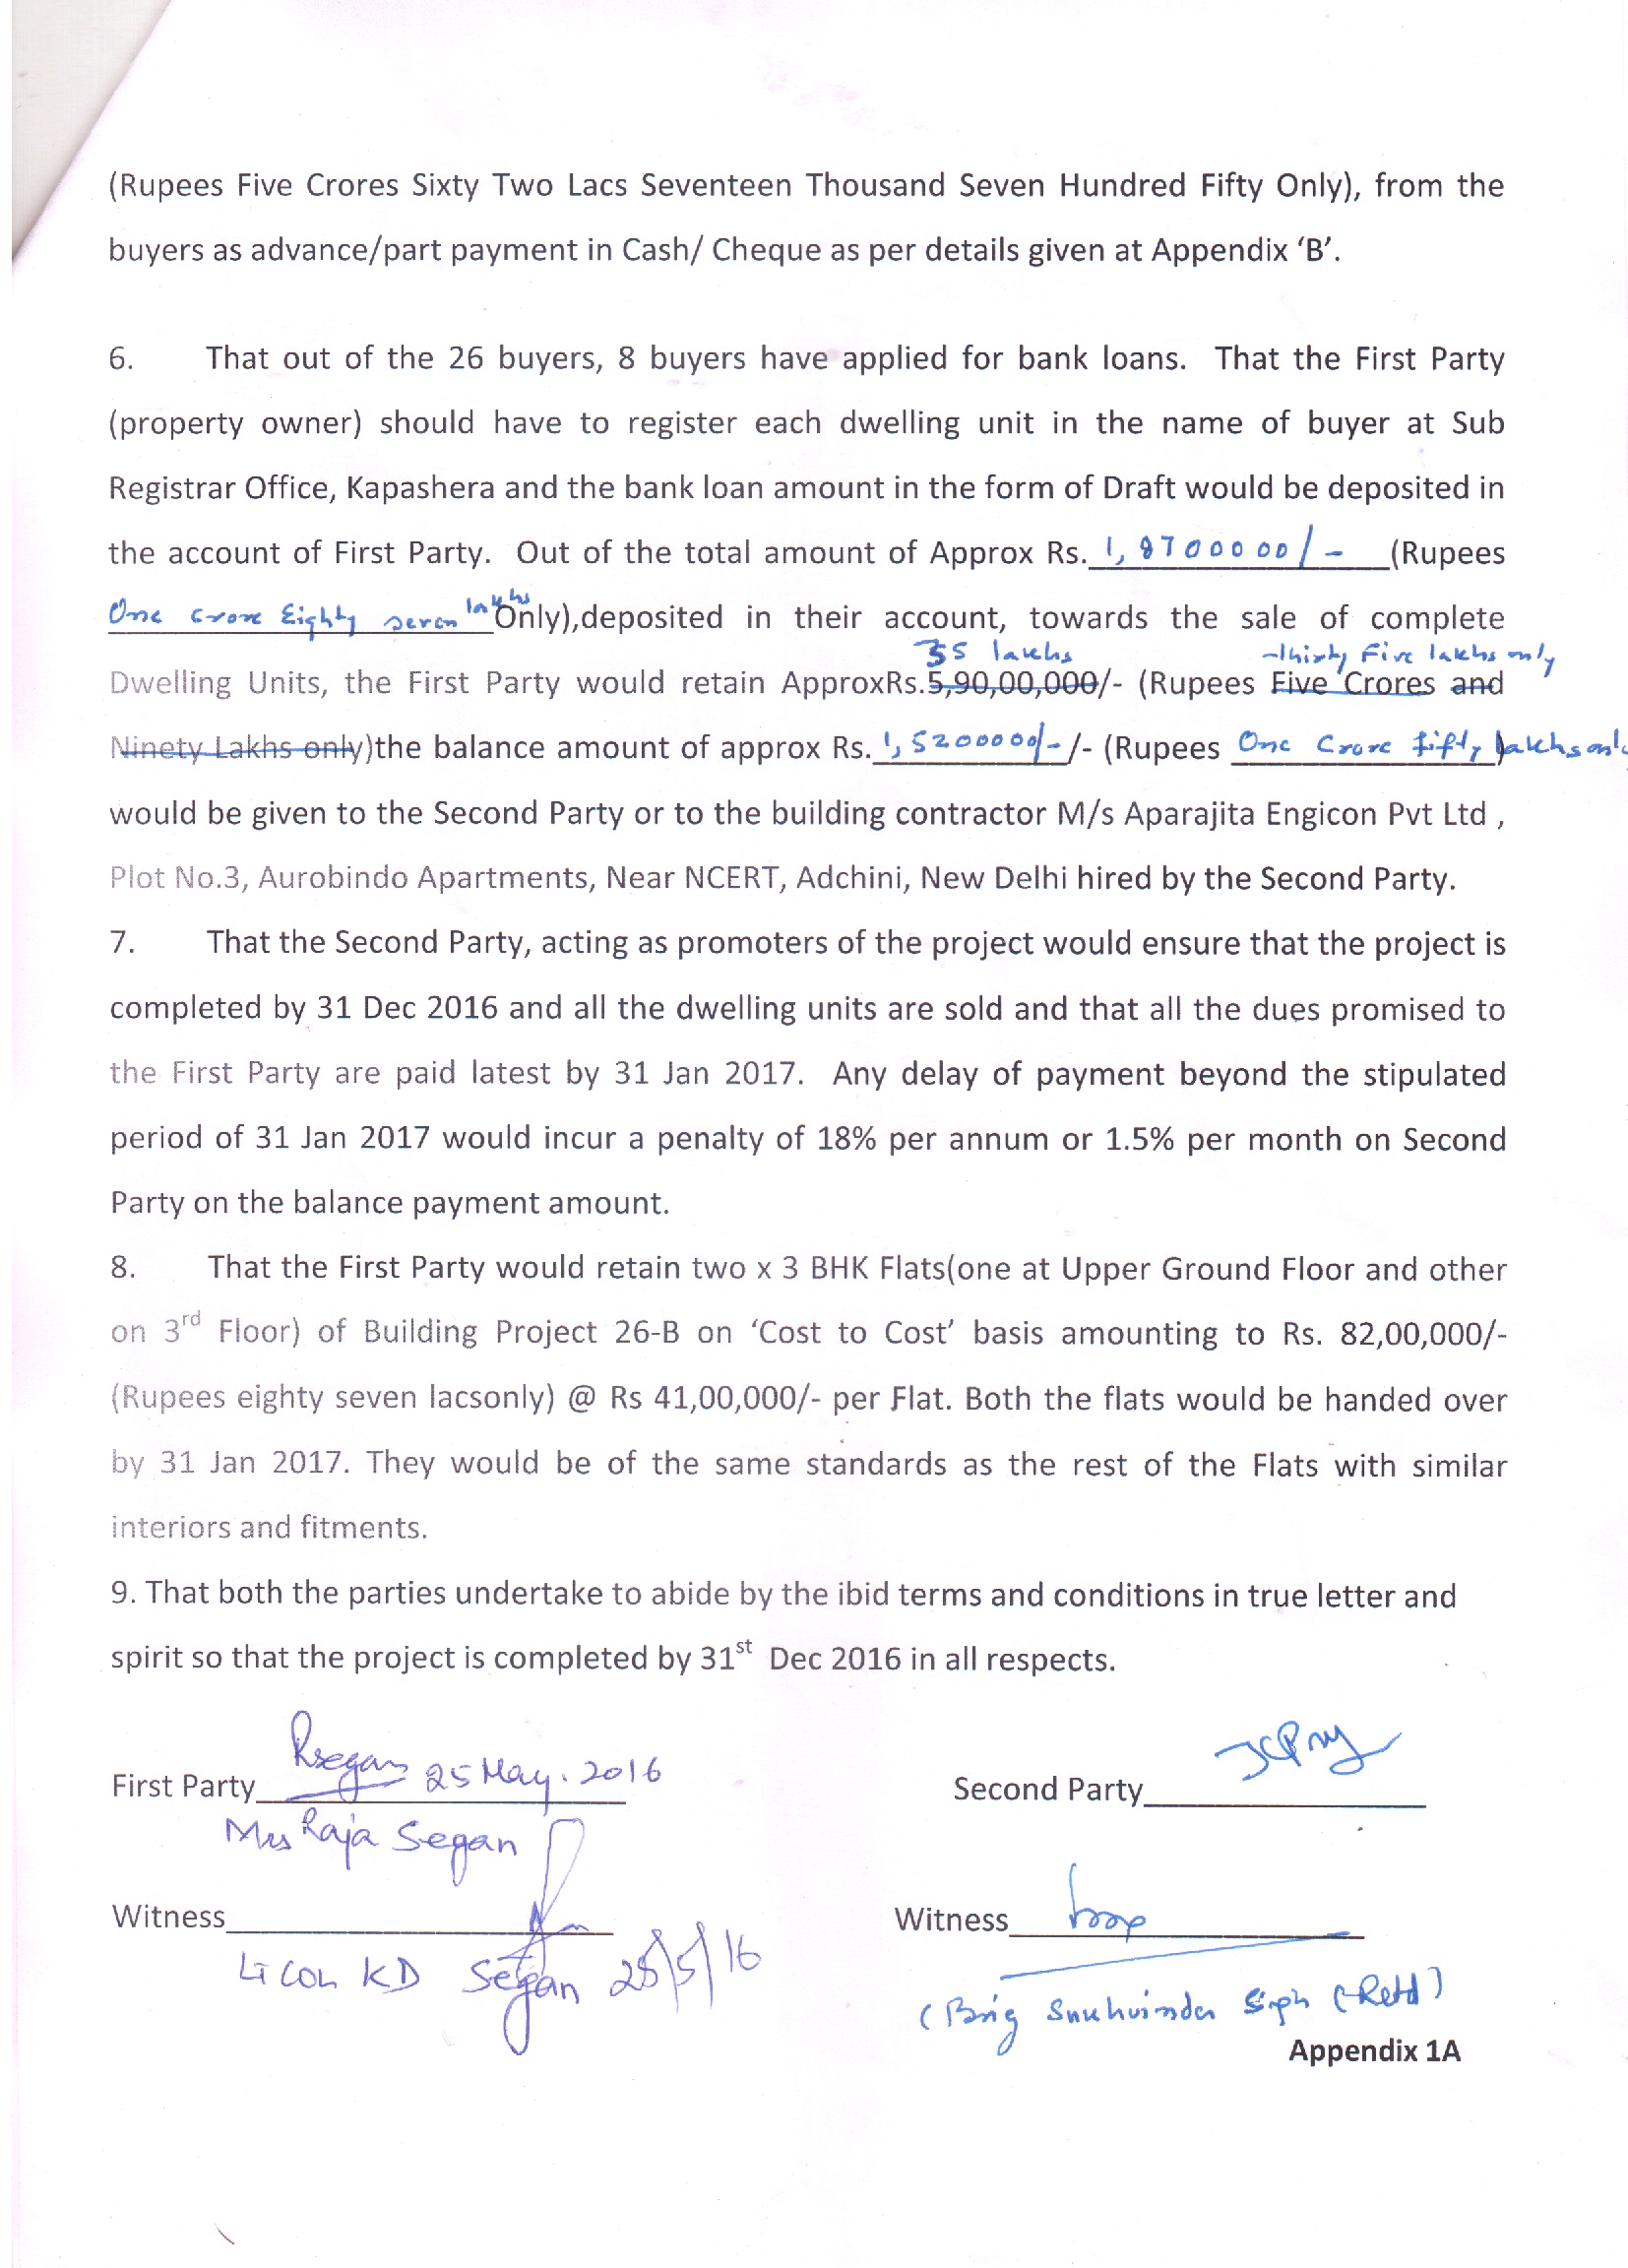 (Rupees Five Crores Sixty Two Lacs Seventeen Thousand Seven Hundred Fifty Only), from the
buyers as advance/part payment in Cash/ Cheque as per details given at Appendix ‘B’.
6. That out of the 26 buyers, 8 buyers have applied for bank loans. That the First Party
(property owner) should have to register each dwelling unit in the name of buyer at Sub
Registrar Office, Kapashera and the bank loan amount in the form of Draft would be deposited in
the account of First Party. Out of the total amount of Approx Rs. 1,8700000/- (Rupees
One Crore Eighty seven lakhs Only),deposited in their account, towards the sale of complete
35 lakhs Thirty Five lakhs only
Dwelling Units, the First Party would retain ApproxRs.5,90,00,000/- (Rupees Five Crores and
Ninety Lakhs only)the balance amount of approx Rs. 1,5200000/-/- (Rupees One Crore fifty lakhs only
would be given to the Second Party or to the building contractor M/s Aparajita Engicon Pvt Ltd ,
Plot No.3, Aurobindo Apartments, Near NCERT, Adchini, New Delhi hired by the Second Party.
7. That the Second Party, acting as promoters of the project would ensure that the project is
completed by 31 Dec 2016 and all the dwelling units are sold and that all the dues promised to
the First Party are paid latest by 31 Jan 2017. Any delay of payment beyond the stipulated
period of 31 Jan 2017 would incur a penalty of 18% per annum or 1.5% per month on Second
Party on the balance payment amount.
8. That the First Party would retain two x 3 BHK Flats(one at Upper Ground Floor and other
on 3rd Floor) of Building Project 26-B on ‘Cost to Cost’ basis amounting to Rs. 82,00,000/-
(Rupees eighty seven lacsonly) @ Rs 41,00,000/- per Flat. Both the flats would be handed over
by 31 Jan 2017. They would be of the same standards as the rest of the Flats with similar
interiors and fitments.
9. That both the parties undertake to abide by the ibid terms and conditions in true letter and
spirit so that the project is completed by 31st Dec 2016 in all respects.
First Party Rsegan 25 May. 2016 Second Party
Mrs Raja Segan
Witness Witness
Lt Col KD Segan 25/5/16
(Brig Sukhvinder Singh (Retd)
Appendix 1A